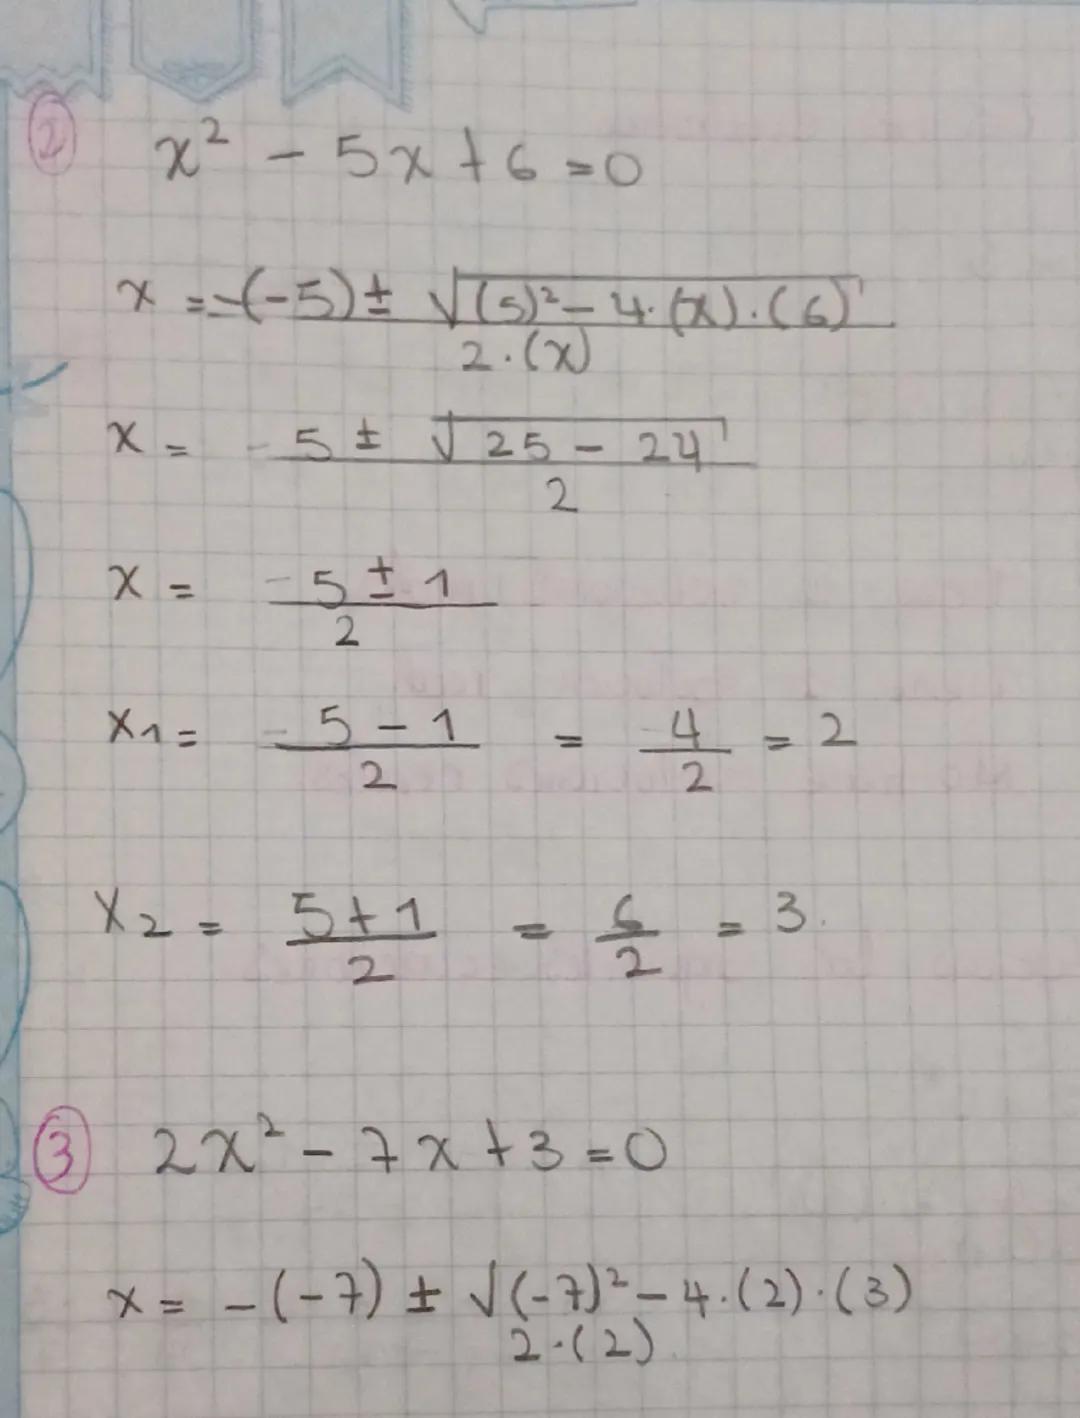 ②
x² - 5x + 6 = 0
x = -(-5) ± √(5)² - 4·(x)·(6) / 2·(x)
x = 5 ± √25 - 24 / 2
x = 5 ± 1 / 2
x1 = 5 - 1 / 2 = 4 / 2 = 2
x2 = 5 + 1 / 2 = 6 / 2 = 3.
③
2x² - 7x + 3 = 0
x = -(-7) ± √(-7)² - 4·(2)·(3) / 2·(2)